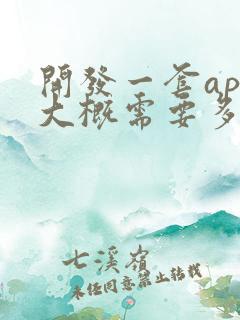 開發一套ap
大概需要多
七溪嶺
未經同意禁止轉載